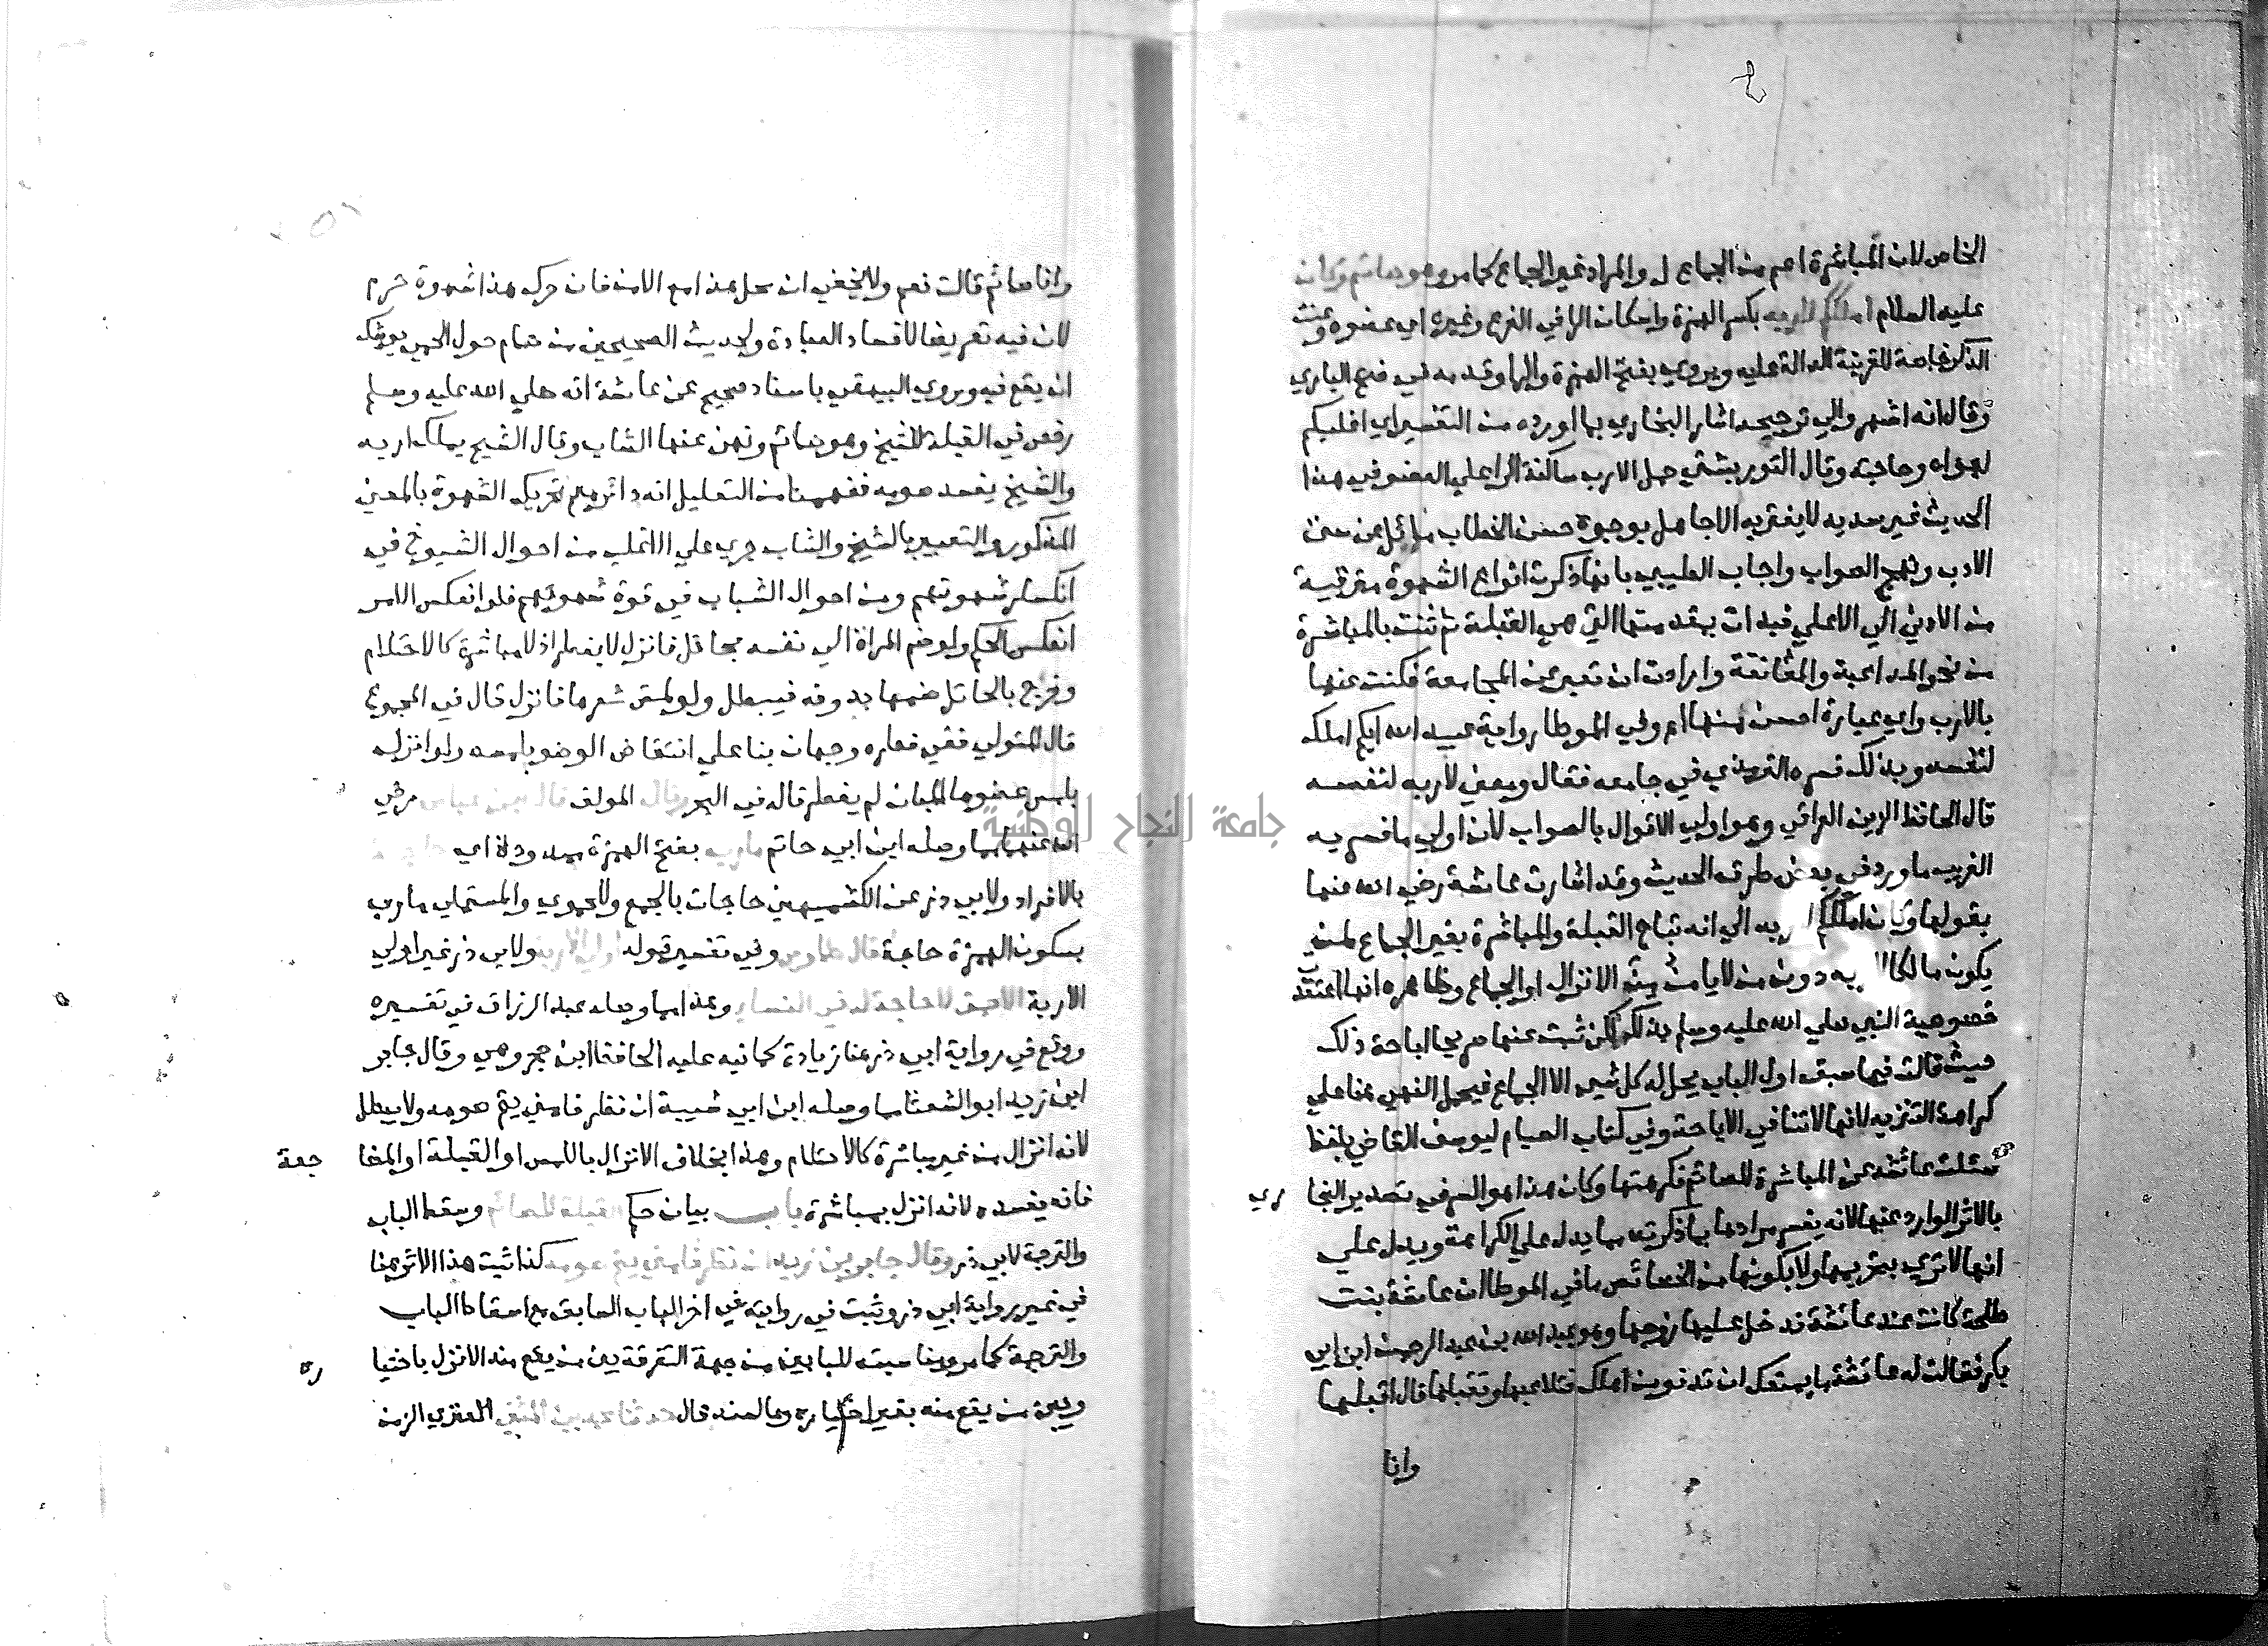 الخاص لان المباشرة اعم من الجماع ل والمراد غير الجماع كما مر وهو صائم وكان
عليه السلام املككم لاربه بكسر الهمزة واسكان الرا في الفرع وغيره اي عضوه وعنت
الذكر خاصة للقرينة الدالة عليه ويروي بفتح الهمزة والرا وقدمه في فتح الباري
وقال انه اشهر والي ترجيحه اشار البخاري بما اورده من التفسير اي اغلبكم
لهواه وحاجته وقال التوربشتي حمل الارب ساكنة الرا علي العضو في هذا
الحديث غير سديد لا يغتر به الا جاهل بوجوه حسن الخطاب مائل عن سنن
الادب ونهج الصواب واجاب الطيبي بانها ذكرت انواع الشهوة مترقية
من الادني الي الاعلي فبدات بمقدمتها التي هي القبلة ثم ثنت بالمباشرة
من نحو المداعبة والمعانقة وارادت ان تعبر عن المجامعة فكنت عنها
بالارب واي عبارة احسن منها اه وفي الموطا رواية عبيد الله ايكم املك
لنفسه وبذلك فسره الترمذي في جامعه فقال ومعني لاربه لنفسه
قال الحافظ الزين العراقي وهو اولي الاقوال بالصواب لان اولي ما فسر به
الغريب ما ورد في بعض طرق الحديث وقد اشارت عائشة رضي الله عنها
بقولها وكان املككم لاربه الي انه تباح القبلة والمباشرة بغير الجماع لمن
يكون مالكا لاربه دون من لا يامن من الانزال او الجماع وظاهره انها اعتقدت
خصوصية النبي صلي الله عليه وسلم بذلك لكن ثبت عنها صريحا اباحة ذلك
حيث قالت فيما سبق اول الباب يحل له كل شي الا الجماع فيحمل النهي هنا علي
كراهة التنزيه لانها لا تنافي الاباحة وفي كتاب الصيام ليوسف القاضي بلفظ
سئلت عائشة عن المباشرة للصائم فكرهتها وكان هذا هو السر في تصدير البخا
ري
بالاثر الوارد عنها لانه يفسر مرادها بما ذكرته مما يدل علي الكراهة ويدل علي
انها لا تري بتحريمها ولا بكونها من الخصائص ما في الموطا ان عائشة بنت
طلحة كانت عند عائشة فدخل عليها زوجها وهو عبد الله بن عبد الرحمن ابن ابي
بكر فقالت له عائشة ما يمنعك ان تدنو من اهلك فتلاعبها وتقبلها قال اقبلها
وانا
وانا صائم قالت نعم ولا يخفي ان محل هذا مع الامن فان حرك هذا شهوة حرم
لان فيه تعريضا لافساد العبادة ولحديث الصحيحين من حام حول الحمي يوشك
ان يقع فيه وروي البيهقي باسناد صحيح عن عائشة انه صلي الله عليه وسلم
رخص في القبلة للشيخ وهو صائم ونهي عنها الشاب وقال الشيخ يملك اربه
والشيخ يفسد صومه ففهمنا من التعليل انه دائر مع تحريك الشهوة بالمعني
المذكور والتعبير بالشيخ والشاب جري علي الاغلب من احوال الشيوخ في
انكسار شهوتهم ومن احوال الشباب في قوة شهوتهم فلو انعكس الامر
انعكس الحكم ولو ضم المراة الي نفسه بحائل فانزل لا يفطر اذ لا مباشرة كالاحتلام
وخرج بالحائل ضمها بدونه فيبطل ولو لمس شعرها فانزل قال في المجموع
قال المتولي ففي فطره وجهان بنا علي انتقاض الوضو بلمسه ولو انزل
بلمس عضوها المبان لم يفطر قاله في البحر وقال المولف قال ابن عباس رضي
الله عنهما مما وصله ابن ابي حاتم مارب بفتح الهمزة ممدودة اي حاجة
بالافراد ولابي ذر عن الكشميهني حاجات بالجمع وللحموي والمستملي مارب
بسكون الهمزة حاجة قال طاوس وفي تفسير قوله اولي الاربة ولابي ذر غير اولي
الاربة الاحمق لا حاجة له في النساء وهذا مما وصله عبد الرزاق في تفسيره
ووقع في رواية ابي ذر هنا زيادة كما نبه عليه الحافظ ابن حجر وهي وقال جابر
ابن زيد ابو الشعثا مما وصله ابن ابي شيبة ان نظر فامني يتم صومه ولا يبطل
لانه انزال من غير مباشرة كالاحتلام وهذا بخلاف الانزال باللمس او القبلة او المضا
جعة
فانه يفسده لانه انزل بمباشرة باب بيان حكم القبلة للصائم وسقط الباب
والترجمة لابي ذر وقال جابر بن زيد ان نظر فامني يتم صومه كذا ثبت هذا الاثر هنا
في غير رواية ابي ذر وثبت في روايته في اخر الباب السابق مع اسقاط الباب
والترجمة كما مر ومناسبته للبابين من جهة التفرقة بين من يقع منه الانزل باختيا
ره
وبين من يقع منه بغير اختياره وبالسند قال حدثنا محمد بن المثني العنزي الزمن
جامعة النجاح الوطنية